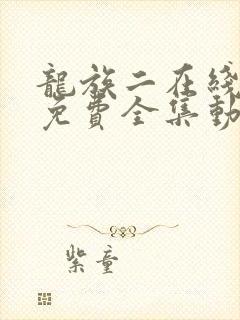 龍族二在綫
免費全集動
紫童